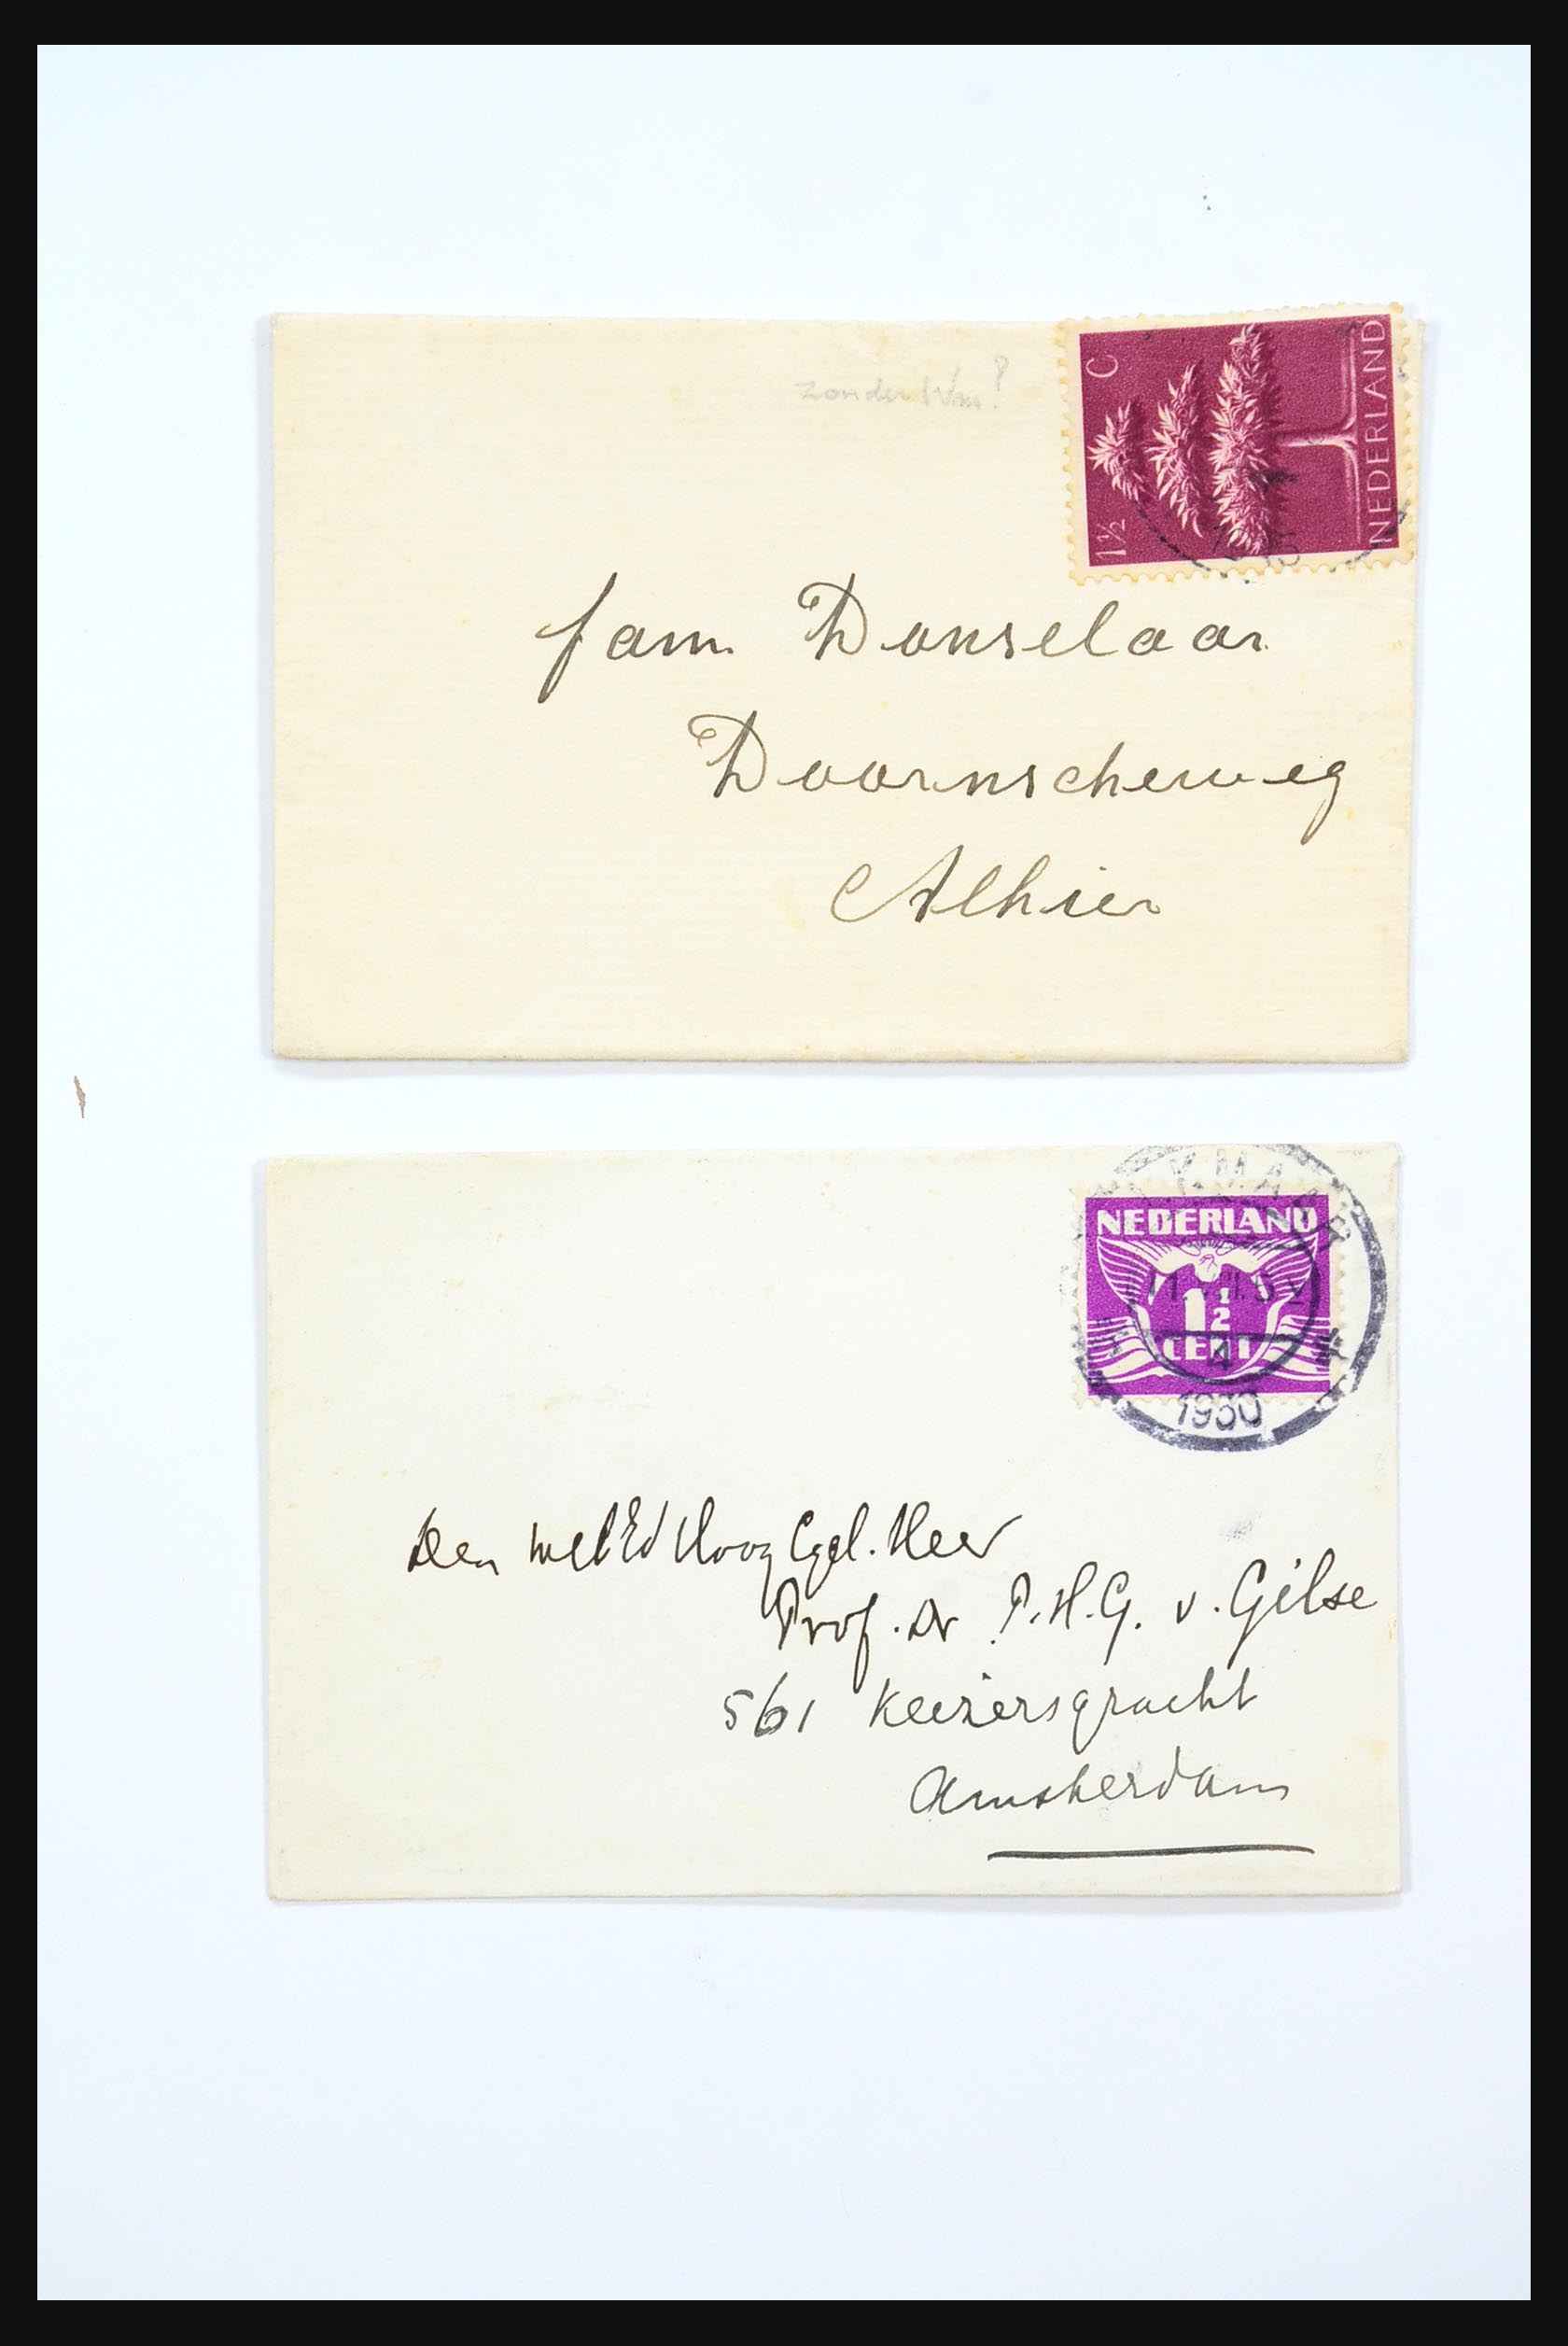 zonder Wm?
1½ C
NEDERLAND
fam Donselaar
Doornscheweg
Alhier
NEDERLAND
1½
CENT
4
1930
Den WelEd Hoog Egel. Heer
Prof. Dr P.H.G. v. Gilse
561 Keizersgracht
Amsterdam